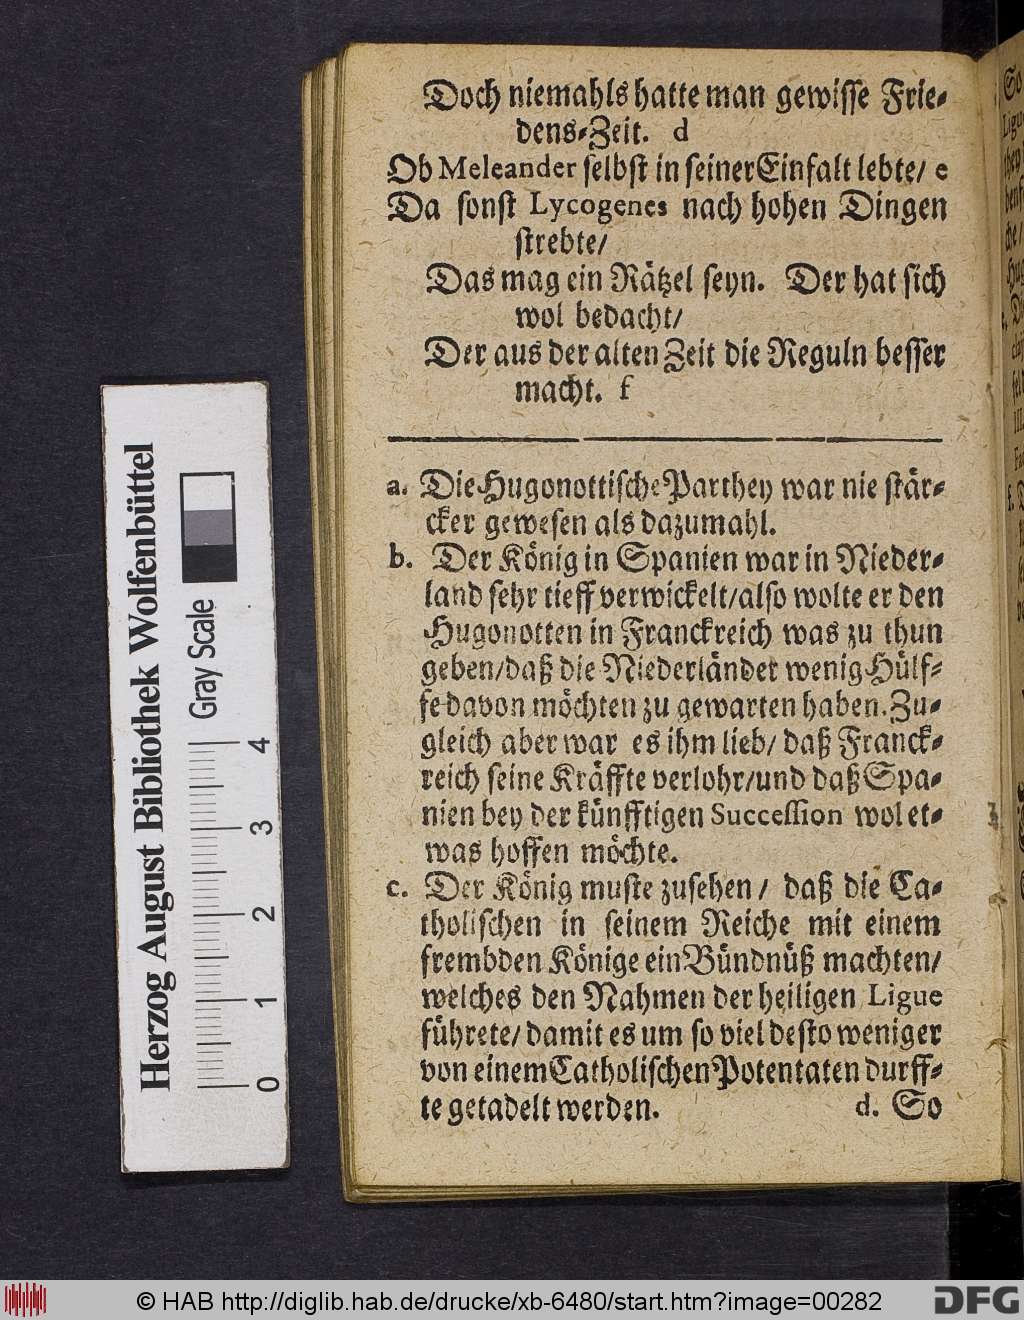 Doch niemahls hatte man gewisse Frie-
dens-Zeit. d
Ob Meleander selbst in seiner Einfalt lebte/ e
Da sonst Lycogenes nach hohen Dingen
strebte/
Das mag ein Rätzel seyn. Der hat sich
wol bedacht/
Der aus der alten Zeit die Reguln besser
macht. f
a. Die Hugonottische Parthey war nie stär-
cker gewesen als dazumahl.
b. Der König in Spanien war in Nieder-
land sehr tieff verwickelt/also wolte er den
Hugonotten in Franckreich was zu thun
geben/daß die Niederländer wenig Hülf-
fe davon möchten zu gewarten haben. Zu-
gleich aber war es ihm lieb/ daß Franck-
reich seine Kräffte verlohr/und daß Spa-
nien bey der künfftigen Succession wol et-
was hoffen möchte.
c. Der König muste zusehen/ daß die Ca-
tholischen in seinem Reiche mit einem
frembden Könige ein Bündnüß machten/
welches den Nahmen der heiligen Ligue
führete/ damit es um so viel desto weniger
von einem Catholischen Potentaten durff-
te getadelt werden.
d. So
Herzog August Bibliothek Wolfenbüttel
Gray Scale
0 1 2 3 4
© HAB http://diglib.hab.de/drucke/xb-6480/start.htm?image=00282
DFG